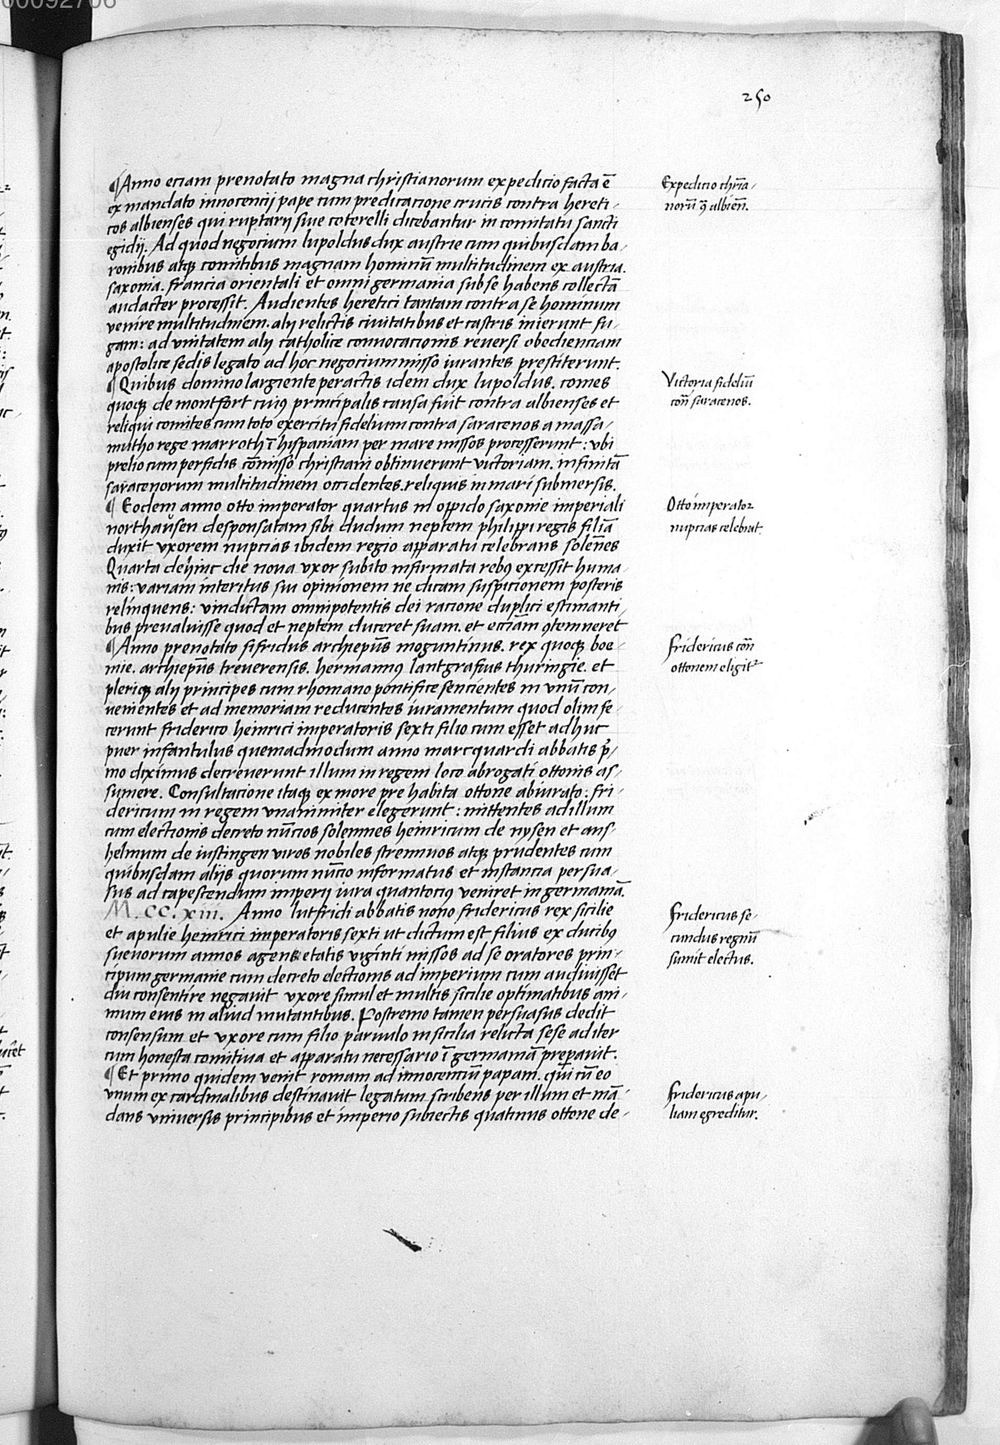 250
¶Anno eciam prenotato magna christianorum expedicio facta ē
ex mandato innocencij pape cum predicacione crucis contra hereti-
cos albienses qui ruptarij siue coterelli dicebantur in comitatu sancti
egidij. Ad quod negocium lupoldus dux austrie cum quibusdam ba-
ronibus atqȝ comitibus magnam hominū multitudinem ex austria.
saxonia. francia orientali et omni germania sub se habens collectā
audacter processit. Audientes heretici tantam contra se hominum
venire multitudinem. alij relictis ciuitatibus et castris inierunt fu-
gam: ad vnitatem alij catholice conuocacionis reuersi obedienciam
apostolice sedis legato ad hoc negocium misso iurantes prestiterunt.
¶Quibus domino largiente peractis idem dux lupoldus. comes
quoqȝ de montfort cuiꝰ principalis causa fuit contra albienses et
reliqui comites cum toto exercitu fidelium contra saracenos a massa-
mutho rege marroth ī hispaniam per mare missos processerunt: vbi
prelio cum perfidis cōmisso christiani obtinuerunt victoriam. infinitā
saracenorum multitudinem occidentes. reliquis in mari submersis.
¶Eodem anno otto imperator quartus in oppido saxonie imperiali
northausen desponsatam sibi dudum neptem philippi regis filiā
duxit vxorem nupcias ibidem regio apparatu celebrans solēnes
Quarta dehinc die noua vxor subito infirmata rebꝰ excessit huma-
nis: variam interitus sui opinionem ne dicam suspicionem posteris
relinquens: vindictam omnipotentis dei racione duplici estimanti-
bus preualuisse quod et neptem duceret suam. et eciam ꝯtemneret
¶Anno prenotato sifridus archiepūs moguntinus. rex quoqȝ boe-
mie. archiepūs treuerensis. hermannꝰ lantgrafius thuringie. et
pleriqȝ alij principes cum rhomano pontifice sencientes in vnū con-
uenientes et ad memoriam reducentes iuramentum quod olim fe-
cerunt friderico heinrici imperatoris sexti filio cum esset adhuc
puer infantulus quemadmodum anno marcquardi abbatis p̄-
mo diximus decreuerunt illum in regem loco abrogati ottonis as-
sumere. Consultacione itaqȝ ex more pre habita ottone abiurato: fri-
dericum in regem vnanimiter elegerunt: mittentes ad illum
cum electionis decreto nūcios solemnes heinricum de nysen et ans-
helmum de iustingen viros nobiles strennuos atqȝ prudentes cum
quibusdam alijs quorum nūcio informatus et instancia persua-
sus ad capescendum imperij iura quantociꝰ veniret in germaniā.
M. CC. xiii. Anno lutfridi abbatis nono fridericus rex sicilie
et apulie heinrici imperatoris sexti ut dictum est filius ex ducibꝰ
sueuorum annos agens etatis viginti missos ad se oratores prin-
cipum germanie cum decreto electionis ad imperium cum audiuisset
diu consentire negauit vxore simul et multis sicilie optimatibus ani-
mum eius in aliud mutantibus. Postremo tamen persuasus dedit
consensum. et vxore cum filio paruulo in sicilia relicta sese ad iter
cum honesta comitiua et apparatu necessario ī germaniā preparauit.
¶Et primo quidem venit romam ad innocenciū papam. qui cū eo
vnum ex cardinalibus destinauit legatum scribens per illum et mā-
dans vniuersis principibus et imperio subiectis quatinus ottone de-
Expedicio chr̄ia-
norū ꝯ albieñ.
Victoria fideliū
coñ saracenos.
Otto imperator
nupcias celebrat.
fridericus coñ
ottonem eligitᷣ
fridericus se-
cundus regnū
sumit electus.
fridericus apu-
liam egreditur.